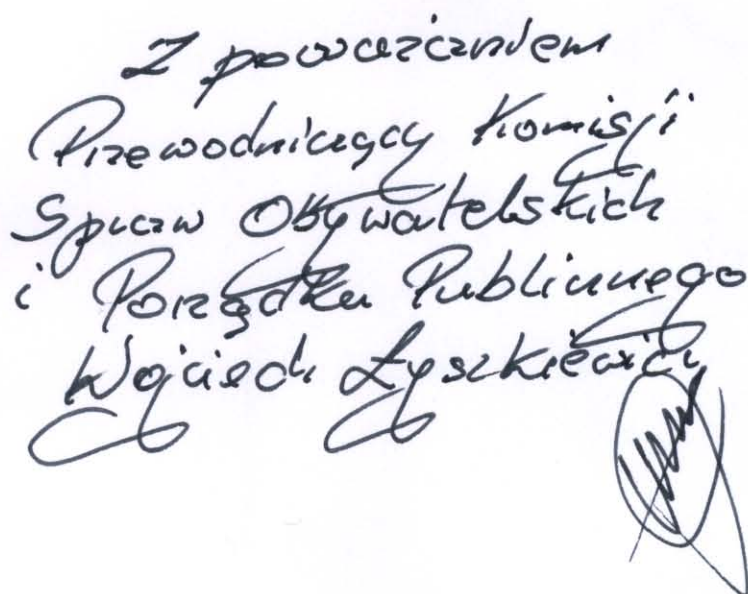 Z poważaniem
Przewodniczący Komisji
Spraw Obywatelskich
i Porządku Publicznego
Wojciech Łyszkiewicz